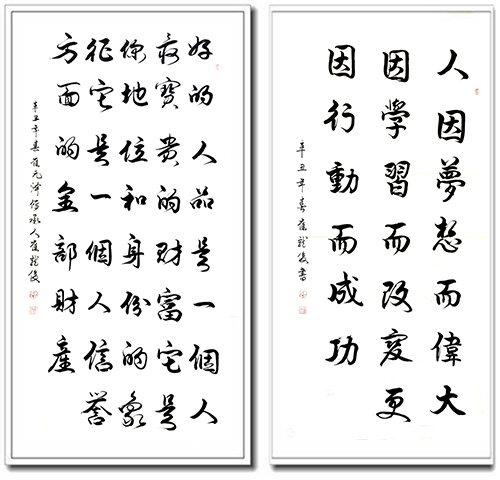 好的人品是一個人
最寶貴的財富它是
你地位和身份的象
征它是一個人信譽
方面的全部財產
辛丑年春崔元澤傳承人崔龍俊
人因夢想而偉大
因學習而改變更
因行動而成功
辛丑年春崔龍俊書